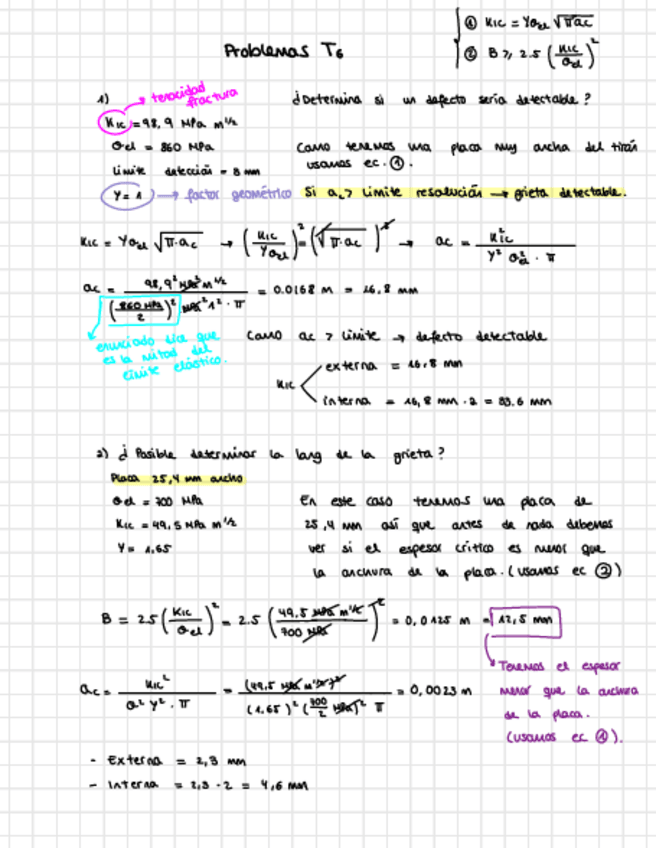 ① KIC = Yσel √πac
Problemas T6
② B ≥ 2.5 (KIC/σel)²
1)
→ tenacidad fractura
¿Determina si un defecto sería detectable?
KIC = 98,9 MPa m^1/2
σel = 860 MPa
Como tenemos una placa muy ancha del tirón
usamos ec. ①.
Límite detección = 8 mm
Y = 1 → factor geométrico
Si ac > Límite resolución → grieta detectable.
KIC = Yσel √π·ac → (KIC/Yσel)² = (√π·ac)² → ac = KIC²/Y² σel² · π
ac = 98,9² MPa² m^1/2 / (860 MPa/2)² MPa² 1² · π = 0.0168 m = 16,8 mm
enunciado dice que
es la mitad del
límite elástico.
Como ac > límite → defecto detectable
KIC
externa = 16,8 mm
interna = 16,8 mm · 2 = 33.6 mm
2) ¿Posible determinar la long de la grieta?
Placa 25,4 mm ancho
σel = 700 MPa
KIC = 49,5 MPa m^1/2
Y = 1,65
En este caso tenemos una placa de
25,4 mm así que antes de nada debemos
ver si el espesor crítico es menor que
la anchura de la placa. (usamos ec ②)
B = 2.5 (KIC/σel)² = 2.5 (49,5 MPa m^1/2 / 700 MPa)² = 0,0125 m = 12,5 mm
Tenemos el espesor
menor que la anchura
de la placa.
(usamos ec ①).
ac = KIC²/σ² Y² · π = (49,5 MPa m^1/2)² / (1.65)² (700/2 MPa)² π = 0,0023 m
- Externa = 2,3 mm
- Interna = 2,3 · 2 = 4,6 mm